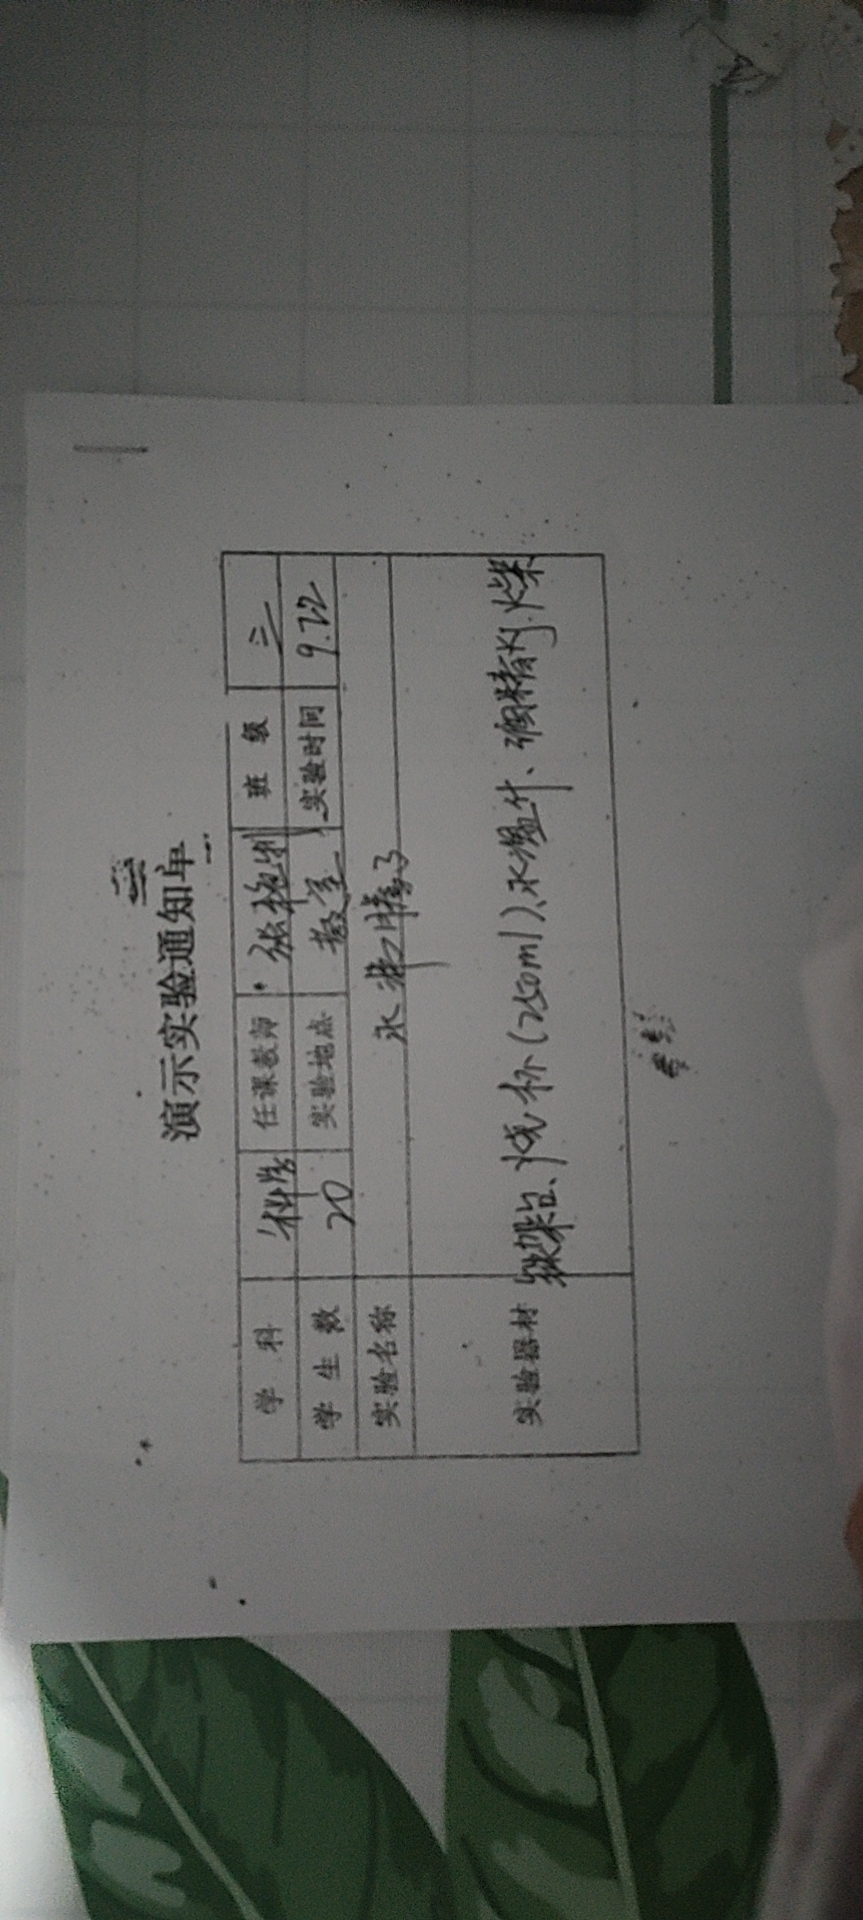 演示实验通知单
学 科 科学 任课教师 张 班 级 三
学 生 数 20 实验地点 教室 实验时间 9.22
实验名称 水沸腾了
实验器材 铁架台、烧杯(250ml)、水温计、酒精灯、火柴